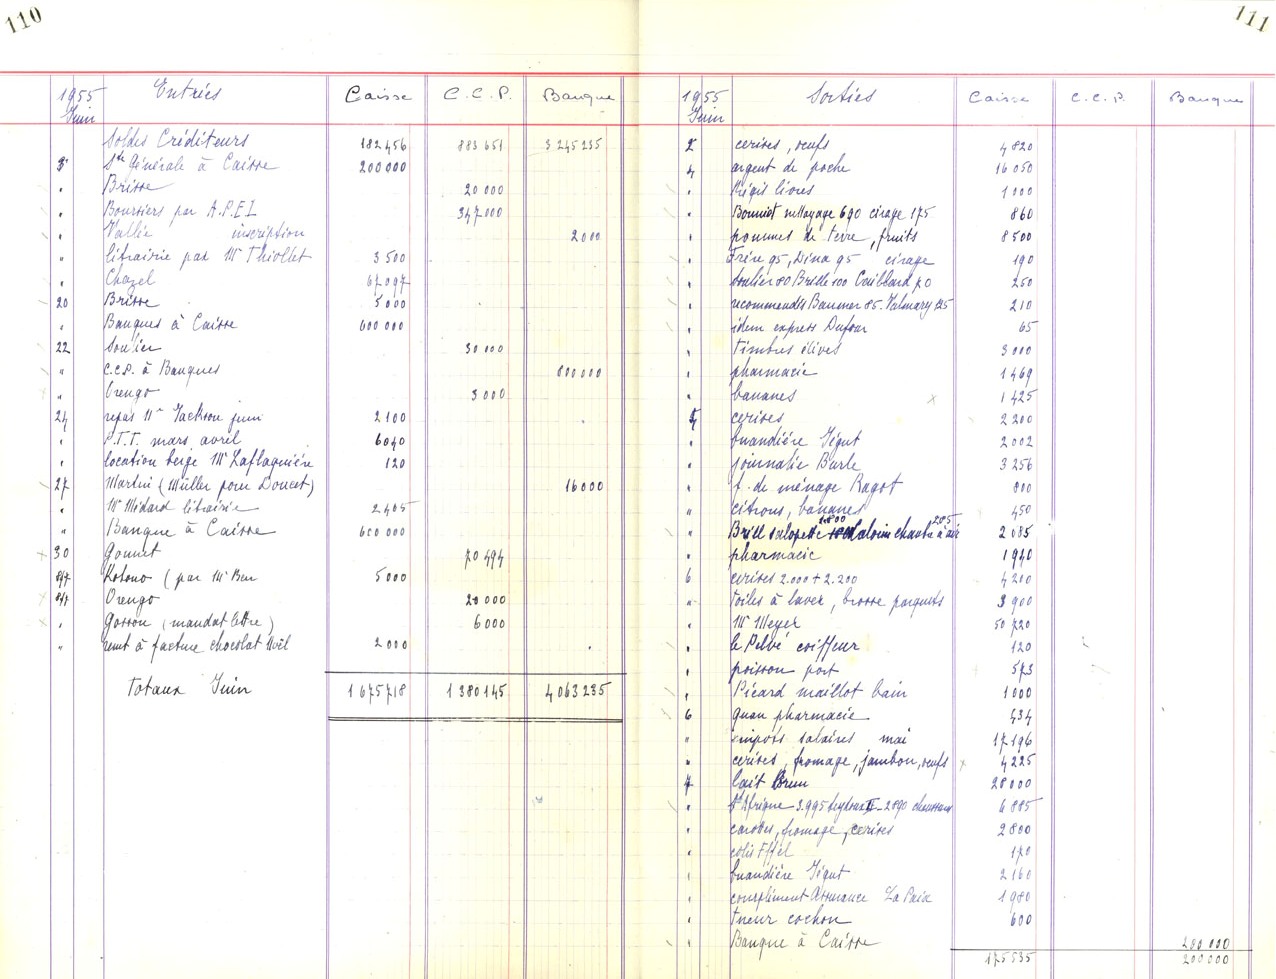 110
1955 Entrées Caisse C.C.P. Banque
Juin
Soldes Créditeurs 182456 883651 3245235
3 Sté Générale à Caisse 200000
" Brisse 20000
" Boursiers par A.P.E.L 347000
" Vallée inscription 2000
" librairie par Mr Thiollet 3500
" Chazel 67097
20 Brisse 5000
" Banques à Caisse 600000
22 Soulier 30000
" C.C.P. à Banques 800000
" Orengo 3000
24 repas Mr Jackson juin 2100
" P.T.T. mars avril 6040
" location beige Mr Laflaquière 120
27 Martin (Müller pour Doucet) 16000
" Mr Médard librairie 2405
" Banque à Caisse 600000
30 Gounet 70494
Kotono (par Mr Ben 5000
Orengo 20000
" Gosson (mandat lettre) 6000
" remt à facture chocolat Noël 2000
Totaux Juin 1675718 1380145 4063235
111
1955 Sorties Caisse C.C.P. Banque
Juin
2 cerises, oeufs 4820
4 argent de poche 16050
" Régis livres 1000
" Bonniot nettoyage 690 cirage 175 860
" pommes de terre, fruits 8500
" Frère 95, Dina 95 cirage 190
" Soulier 80 Brille 100 70 250
" recommandés Baumer 85. Valmary 125 210
" idem express Dufour 65
" timbres élèves 3000
" pharmacie 1469
" bananes 1425
5 cerises 2200
" buandière Tégut 2002
" journalie Burle 3256
" f. de ménage Ragot 800
" citrons, bananes 450
" Brill salopette 1800 chambre à air 285 2085
" pharmacie 1940
6 cerises 2.000 + 2.200 4200
" toiles à laver, brosse parquets 3900
" Mr Meyer 50720
" le Pelvé coiffeur 120
" poisson port 573
" Picard maillot bain 1000
6 quan pharmacie 434
" impôts salaires mai 17196
" cerises, fromage, jambon, oeufs 4225
7 lait Brun 28000
" St Afrique 3.995 2890 chaussures 6885
" carottes, fromage, cerises 2800
" colis Effel 170
" buandière Tégut 2160
" complément Assurance La Paix 1980
" tueur cochon 600
" Banque à Caisse 200 000
175535 200000